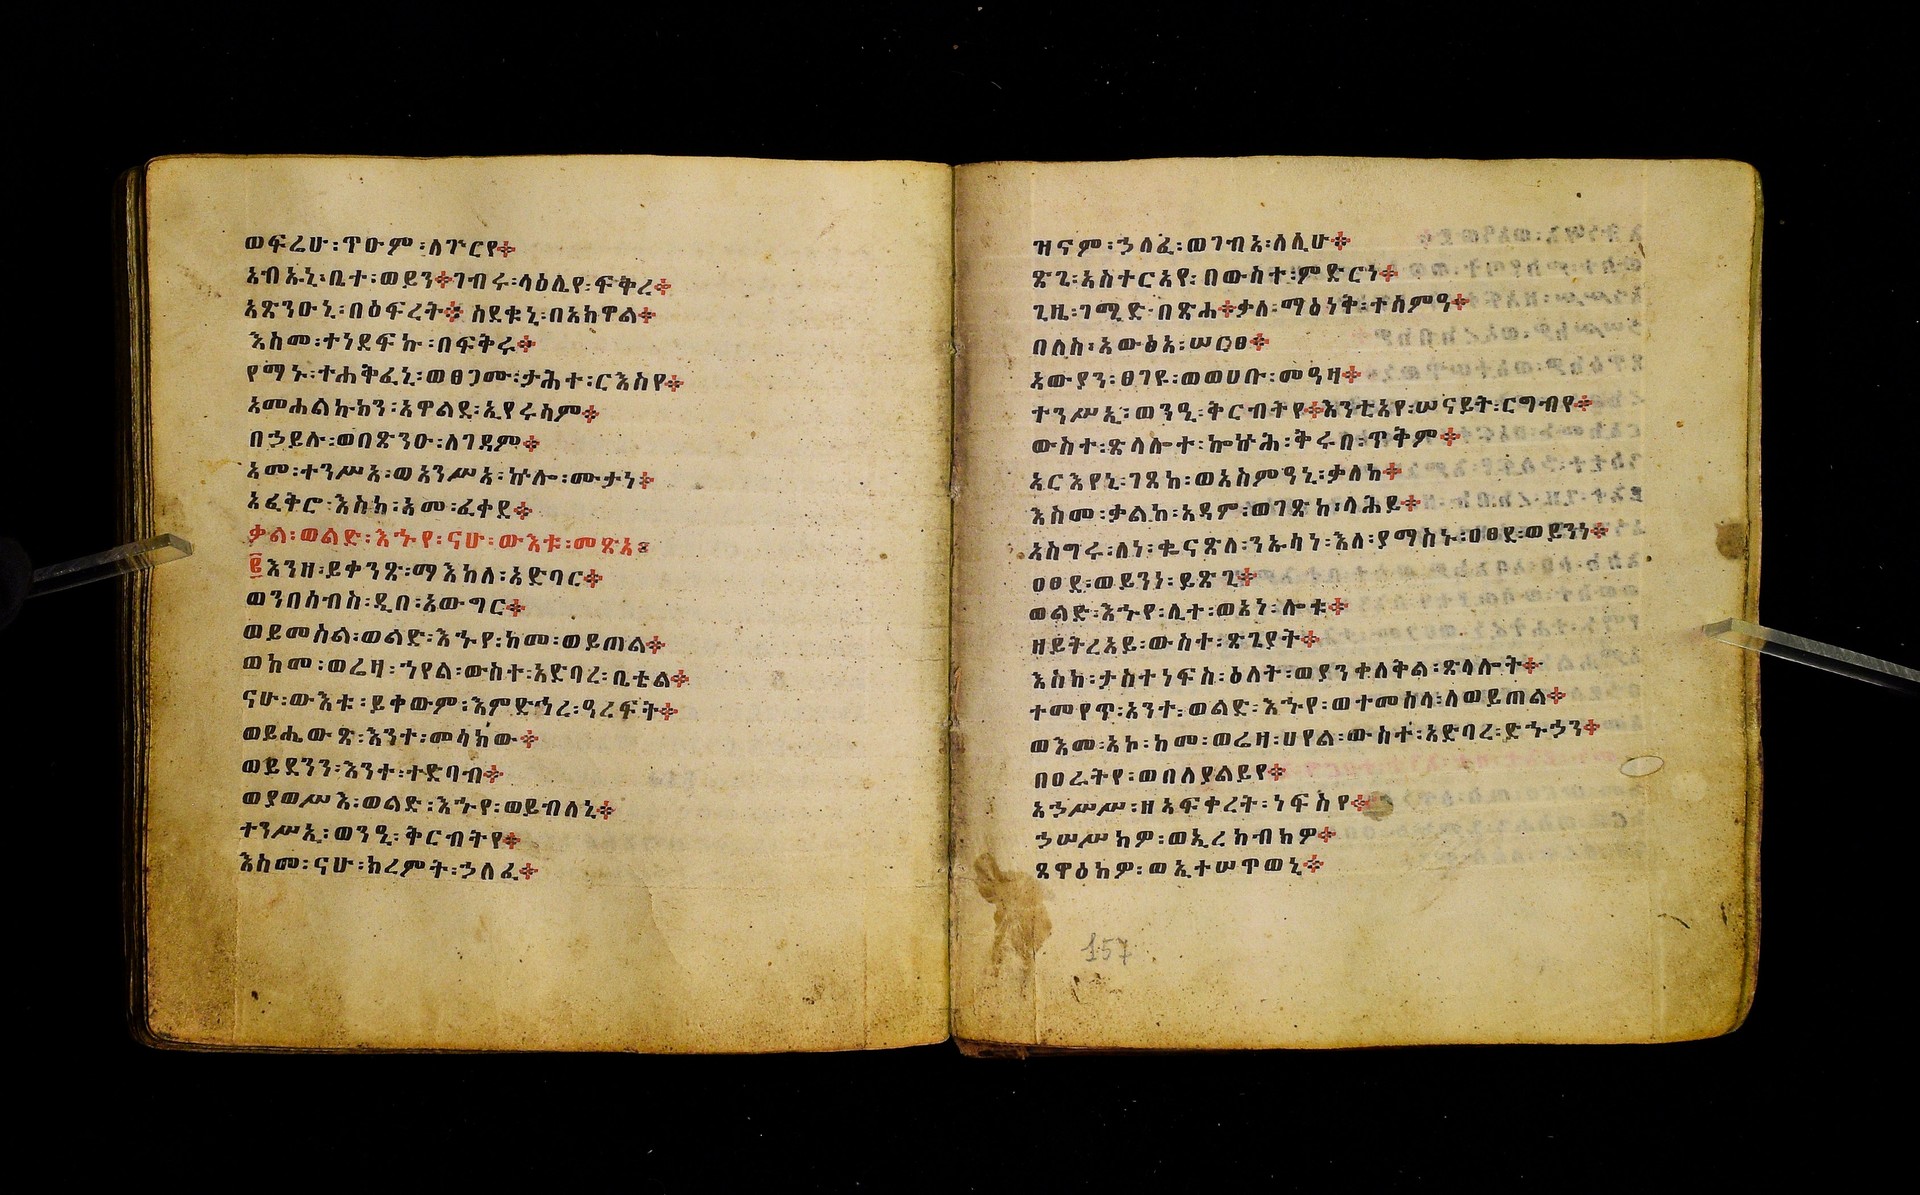 ወፍሬሁ፡ጥዑም፡ለጕርዬ፨
አብኡኒ፡ቤተ፡ወይን፨ገብሩ፡ላዕሌየ፡ፍቅረ፨
አጽንዑኒ፡በዕፍረት፨ ስደቁኒ፡በአከዋል፨
እስመ፡ተነደፍኩ፡በፍቅሩ፨
የማኑ፡ተሐቅፈኒ፡ወፀጋሙ፡ታሕተ፡ርእስየ፨
አመሐልኩክን፡አዋልደ፡ኢየሩሳም፨
በኃይሉ፡ወበጽንዑ፡ለገዳም፨
አመ፡ተንሥአ፡ወአንሥአ፡ኵሎ፡ሙታነ፨
አፈቅሮ፡እስከ፡አመ፡ፈቀደ፨
ቃል፡ወልድ፡እኁየ፡ናሁ፡ውእቱ፡መጽአ፡
፪እንዘ፡ይቀንጽ፡ማእከለ፡አድባር፨
ወንበሰብስ፡ዲበ፡አውግር፨
ወይመስል፡ወልድ፡እኁየ፡ከመ፡ወይጠል፨
ወከመ፡ወሬዛ፡ኀየል፡ውስተ፡አድባረ፡ቤቴል፨
ናሁ፡ውእቱ፡ይቀውም፡እምድኅረ፡ዓረፍት፨
ወይሔውጽ፡እንተ፡መሳክው፨
ወይደንን፡እንተ፡ተድባብ፨
ወያወሥእ፡ወልድ፡እኁየ፡ወይብለኒ፨
ተንሥኢ፡ወንዒ፡ቅርብትየ፨
እስመ፡ናሁ፡ክረምት፡ኃለፈ፨
ዝናም፡ኃለፈ፡ወገብአ፡ለሊሁ፨
ጽጌ፡አስተርአየ፡በውስተ፡ምድርነ፨
ጊዜ፡ገሚድ፡በጽሐ፨ቃለ፡ማዕነቅ፡ተሰምዓ፨
በለስ፡አውፅአ፡ሠርፀ፨
አውያን፡ፀገዩ፡ወወሀቡ፡መዓዛ፨
ተንሥኢ፡ወንዒ፡ቅርብትየ፨እንቲአየ፡ሠናይት፡ርግብየ፨
ውስተ፡ጽላሎተ፡ኰኵሕ፡ቅሩበ፡ጥቅም፨
አርእየኒ፡ገጸከ፡ወአስምዓኒ፡ቃለከ፨
እስመ፡ቃልከ፡አዳም፡ወገጽከ፡ላሕይ፨
አስግሩ፡ለነ፡ቈናጽለ፡ንኡሳነ፡እለ፡ያማስኑ፡ዐፀደ፡ወይንነ፨
ዐፀደ፡ወይንነ፡ይጽጊ፨
ወልድ፡እኁየ፡ሊተ፡ወአነ፡ሎቱ፨
ዘይትረአይ፡ውስተ፡ጽጌያት፨
እስከ፡ታስተነፍስ፡ዕለት፡ወያንቀለቅል፡ጽላሎት፨
ተመየጥ፡አንተ፡ወልድ፡እኁየ፡ወተመሰላ፡ለወይጠል፨
ወእመ፡አኮ፡ከመ፡ወሬዛ፡ሀየል፡ውስተ፡አድባረ፡ድኁኃን፨
በዐራትየ፡ወበለያልይየ፨
አኃሥሥ፡ዘአፍቀረት፡ነፍስየ፨
ኃሠሥክዎ፡ወኢረከብክዎ፨
ጸዋዕክዎ፡ወኢተሠጥወኒ፨
157